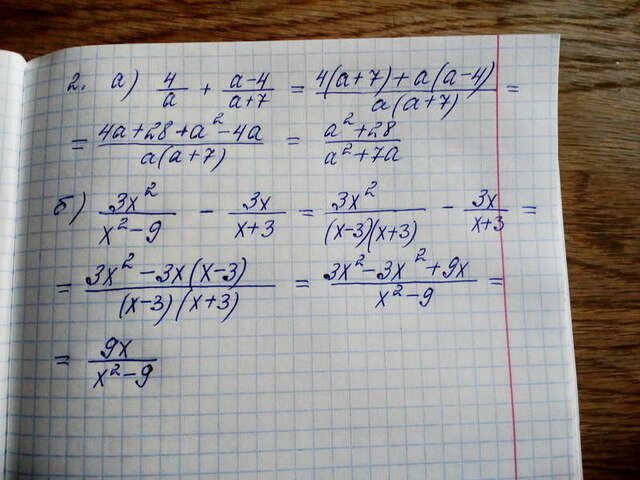 2. а) 4/a + (a-4)/(a+7) = (4(a+7)+a(a-4))/(a(a+7)) =
= (4a+28+a²-4a)/(a(a+7)) = (a²+28)/(a²+7a)
б) 3x²/(x²-9) - 3x/(x+3) = 3x²/((x-3)(x+3)) - 3x/(x+3) =
= (3x²-3x(x-3))/((x-3)(x+3)) = (3x²-3x²+9x)/(x²-9) =
= 9x/(x²-9)